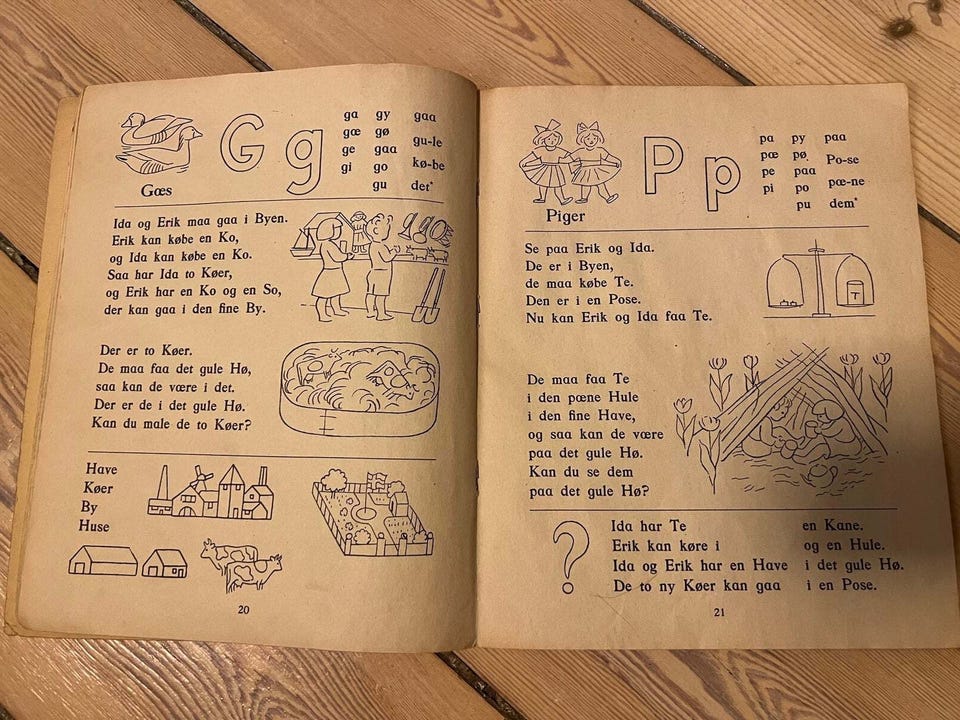 G g
ga gy gaa
gæ gø gu-le
ge gaa kø-be
gi go
gu det*
Gæs
Ida og Erik maa gaa i Byen.
Erik kan købe en Ko,
og Ida kan købe en Ko.
Saa har Ida to Køer,
og Erik har en Ko og en So,
der kan gaa i den fine By.
Der er to Køer.
De maa faa det gule Hø,
saa kan de være i det.
Der er de i det gule Hø.
Kan du male de to Køer?
Have
Køer
By
Huse
20
P p
pa py paa
pæ pø Po-se
pe paa pæ-ne
pi po
pu dem*
Piger
Se paa Erik og Ida.
De er i Byen,
de maa købe Te.
Den er i en Pose.
Nu kan Erik og Ida faa Te.
T
De maa faa Te
i den pæne Hule
i den fine Have,
og saa kan de være
paa det gule Hø.
Kan du se dem
paa det gule Hø?
?
Ida har Te en Kane.
Erik kan køre i og en Hule.
Ida og Erik har en Have i det gule Hø.
De to ny Køer kan gaa i en Pose.
21